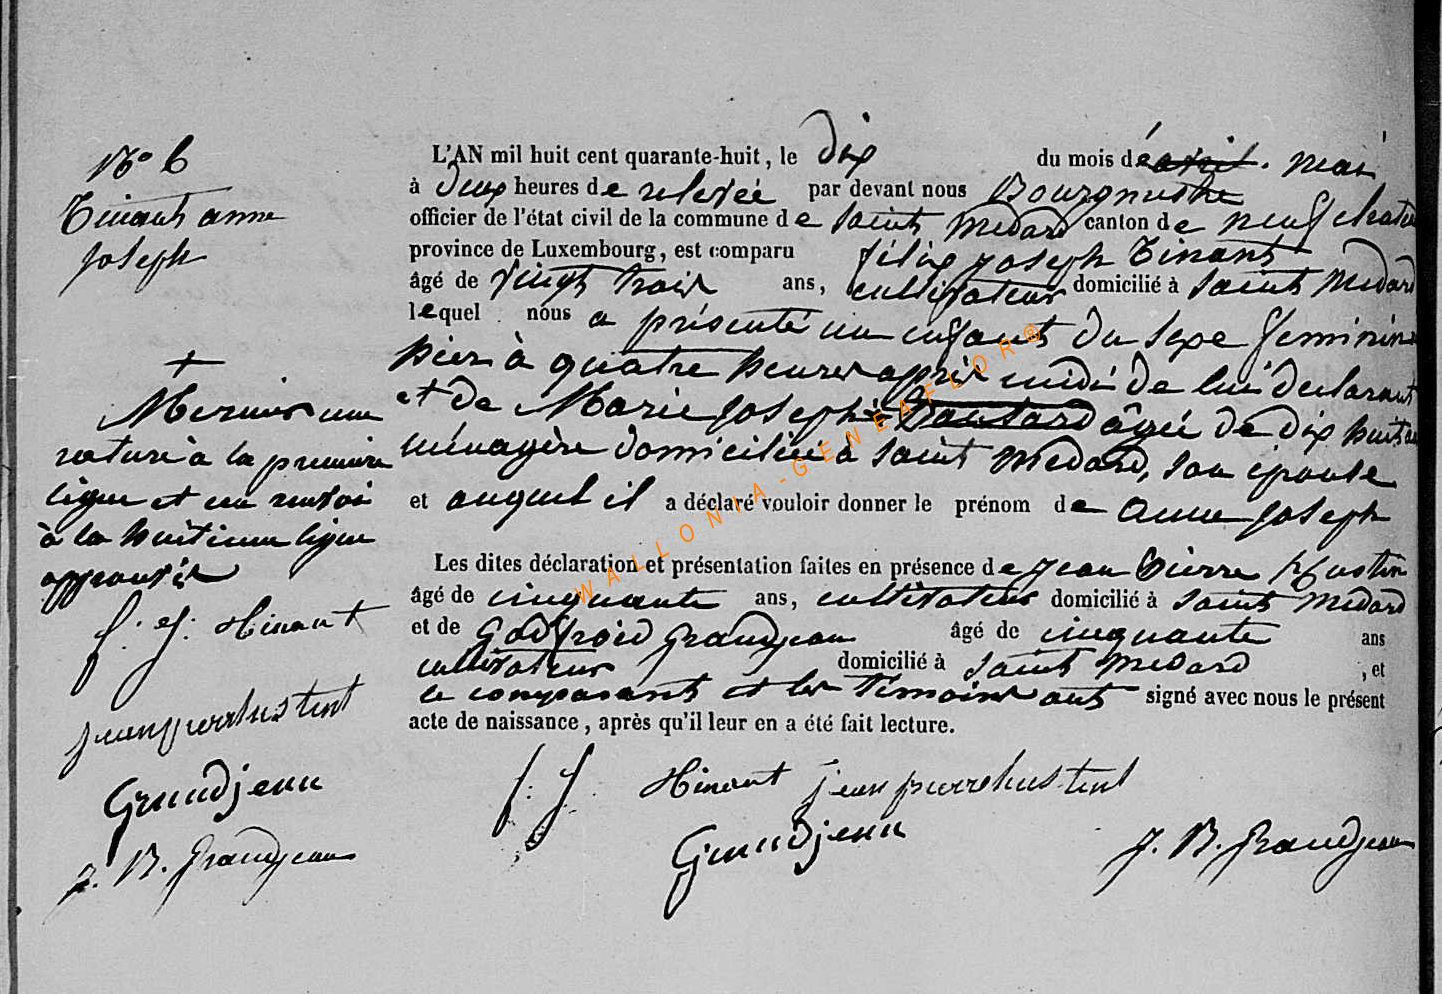 N° 6
Tinant anne
joseph
L'AN mil huit cent quarante-huit, le dix du mois de avril. mai
à deux heures de relevée par devant nous Bourgmestre
officier de l'état civil de la commune de saint Médard canton de neufchateau
province de Luxembourg, est comparu félix joseph Tinant
âgé de vingt trois ans, cultivateur domicilié à saint Médard
lequel nous a présenté un enfant du sexe feminin
hier à quatre heures après midi de lui déclarant
et de Marie joseph âgée de dix huit ans
ménagère domiciliée à saint Médard, son épouse
et auquel il a déclaré vouloir donner le prénom de anne joseph
Les dites déclaration et présentation faites en présence de jean Pierre
âgé de cinquante ans, cultivateur domicilié à saint Médard
et de Godfroid grandjean âgé de cinquante ans
cultivateur domicilié à saint Médard, et
le comparant et les témoins ont signé avec nous le présent
acte de naissance, après qu'il leur en a été fait lecture.
+
une
rature à la première
ligne et un renvoi
à la huitième ligne
approuvés
f. j. Hinant
Grandjean
J. B. grandjean
f. j. Hinant
Grandjean
J. B. grandjean
WALLONIA-GENEAFLOR®